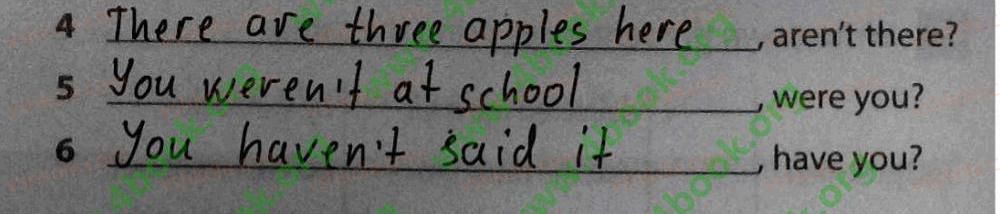 4 There are three apples here, aren't there?
5 You weren't at school, were you?
6 You haven't said it, have you?